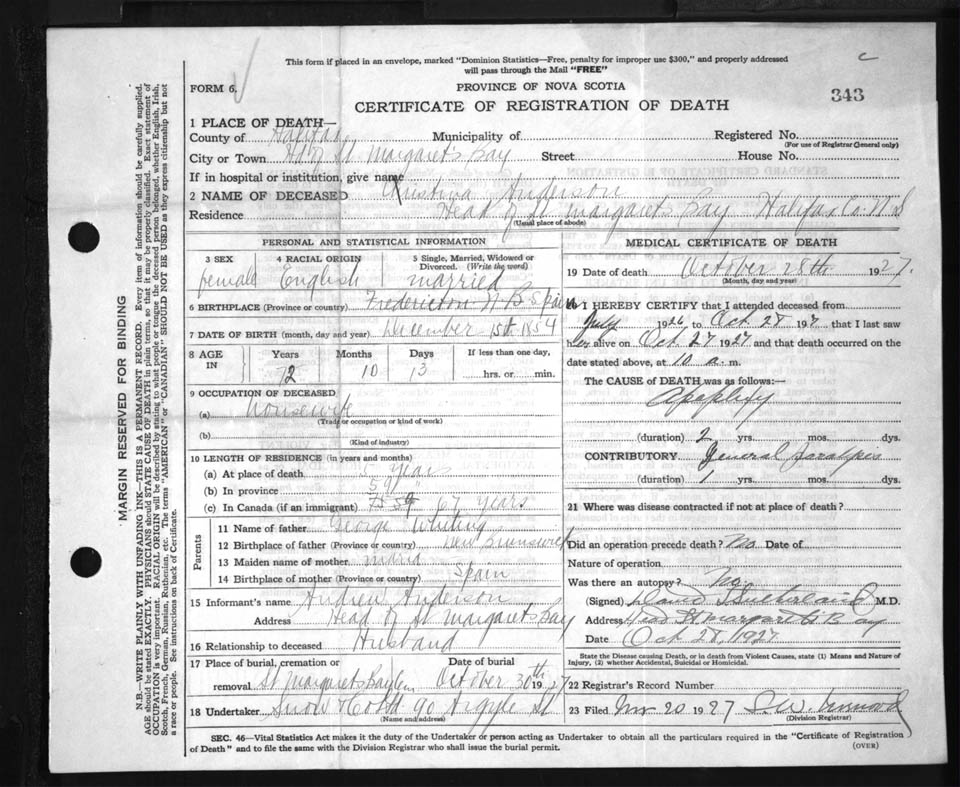 This form if placed in an envelope, marked "Dominion Statistics—Free, penalty for improper use $300," and properly addressed
will pass through the Mail "FREE"
c
FORM 6.
PROVINCE OF NOVA SCOTIA
CERTIFICATE OF REGISTRATION OF DEATH
343
1 PLACE OF DEATH—
County of Halifax Municipality of Registered No.
(For use of Registrar General only)
City or Town Hd of St Margaret's Bay Street House No.
If in hospital or institution, give name
2 NAME OF DECEASED Anderson
Residence Head of St Margarets Bay Halifax Co. N S
(Usual place of abode)
PERSONAL AND STATISTICAL INFORMATION
3 SEX 4 RACIAL ORIGIN 5 Single, Married, Widowed or Divorced. (Write the word)
female English married
6 BIRTHPLACE (Province or country) Fredericton N B Spain
7 DATE OF BIRTH (month, day and year) December 15th 1854
8 AGE IN Years Months Days If less than one day,
72 10 13 hrs. or min.
9 OCCUPATION OF DECEASED
(a) Housewife
(Trade or occupation or kind of work)
(b)
(Kind of industry)
10 LENGTH OF RESIDENCE (in years and months)
(a) At place of death 5 years
(b) In province 59
(c) In Canada (if an immigrant) 67 years
Parents
11 Name of father George Whiting
12 Birthplace of father (Province or country) New Brunswick
13 Maiden name of mother Maria
14 Birthplace of mother (Province or country) Spain
15 Informant's name Andrew Anderson
Address Head of St Margarets Bay
16 Relationship to deceased Husband
17 Place of burial, cremation or Date of burial
removal St Margarets Bay Cem October 30th 1927
18 Undertaker Snow & Co Ltd 90 Argyle St
(Name and address)
MEDICAL CERTIFICATE OF DEATH
19 Date of death October 28th 1927.
(Month, day and year)
20 I HEREBY CERTIFY that I attended deceased from
July 1926 to Oct 28 1927 that I last saw
her alive on Oct 27 1927 and that death occurred on the
date stated above, at 10 a. m.
The CAUSE OF DEATH was as follows:
Apoplexy
(duration) 2 yrs. mos. dys.
CONTRIBUTORY General Paralysis
(duration) 1 yrs. mos. dys.
21 Where was disease contracted if not at place of death?
Did an operation precede death? No Date of
Nature of operation
Was there an autopsy? No
(Signed) Sutherland M.D.
Address Head St Margarets Bay
Date Oct 28, 1927
State the Disease causing Death, or in Death from Violent Causes, state (1) Means and Nature of
Injury, (2) whether Accidental, Suicidal or Homicidal.
22 Registrar's Record Number
23 Filed Nov 20 1927
(Division Registrar)
SEC. 46—Vital Statistics Act makes it the duty of the Undertaker or person acting as Undertaker to obtain all the particulars required in the "Certificate of Registration
of Death" and to file the same with the Division Registrar who shall issue the burial permit.
(OVER)
MARGIN RESERVED FOR BINDING
N.B.—WRITE PLAINLY WITH UNFADING INK—THIS IS A PERMANENT RECORD. Every item of information should be carefully supplied.
AGE should be stated EXACTLY. PHYSICIANS should STATE CAUSE OF DEATH in plain terms, so that it may be properly classified. Exact statement of
OCCUPATION is very important. RACIAL ORIGIN will be described by stating to what people or tongue the deceased person belonged, whether English, Irish,
Scotch, French, German, Russian, Ruthenian, etc. The terms "AMERICAN" or "CANADIAN" SHOULD NOT BE USED as they express citizenship but not
a race or people. See instructions on back of Certificate.